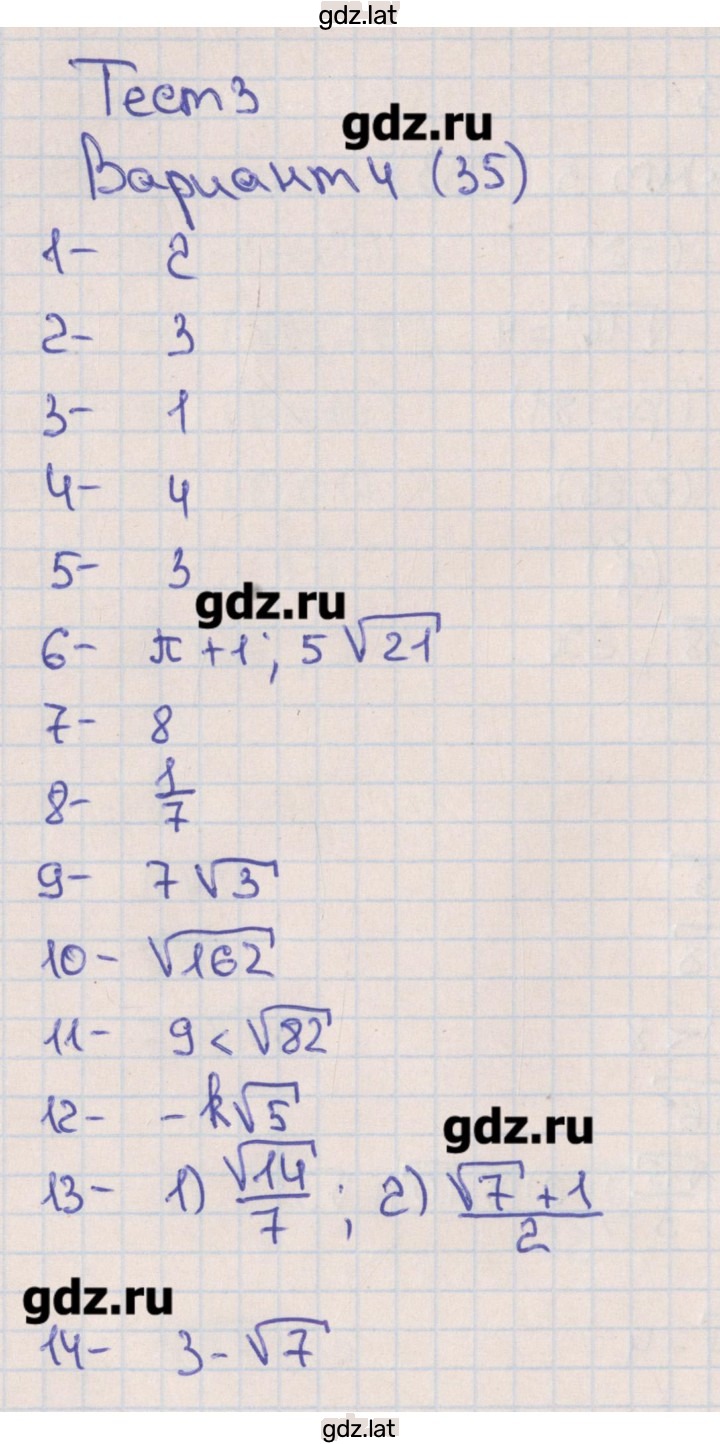 gdz.lat
Тест 3
gdz.ru
Вариант 4 (35)
1- 2
2- 3
3- 1
4- 4
5- 3
gdz.ru
6- π + 1; 5√21
7- 8
8- 1/7
9- 7√3
10- √162
11- 9 < √82
12- -k√5
gdz.ru
13- 1) √14/7; 2) (√7 + 1)/2
gdz.ru
14- 3 - √7
gdz.lat